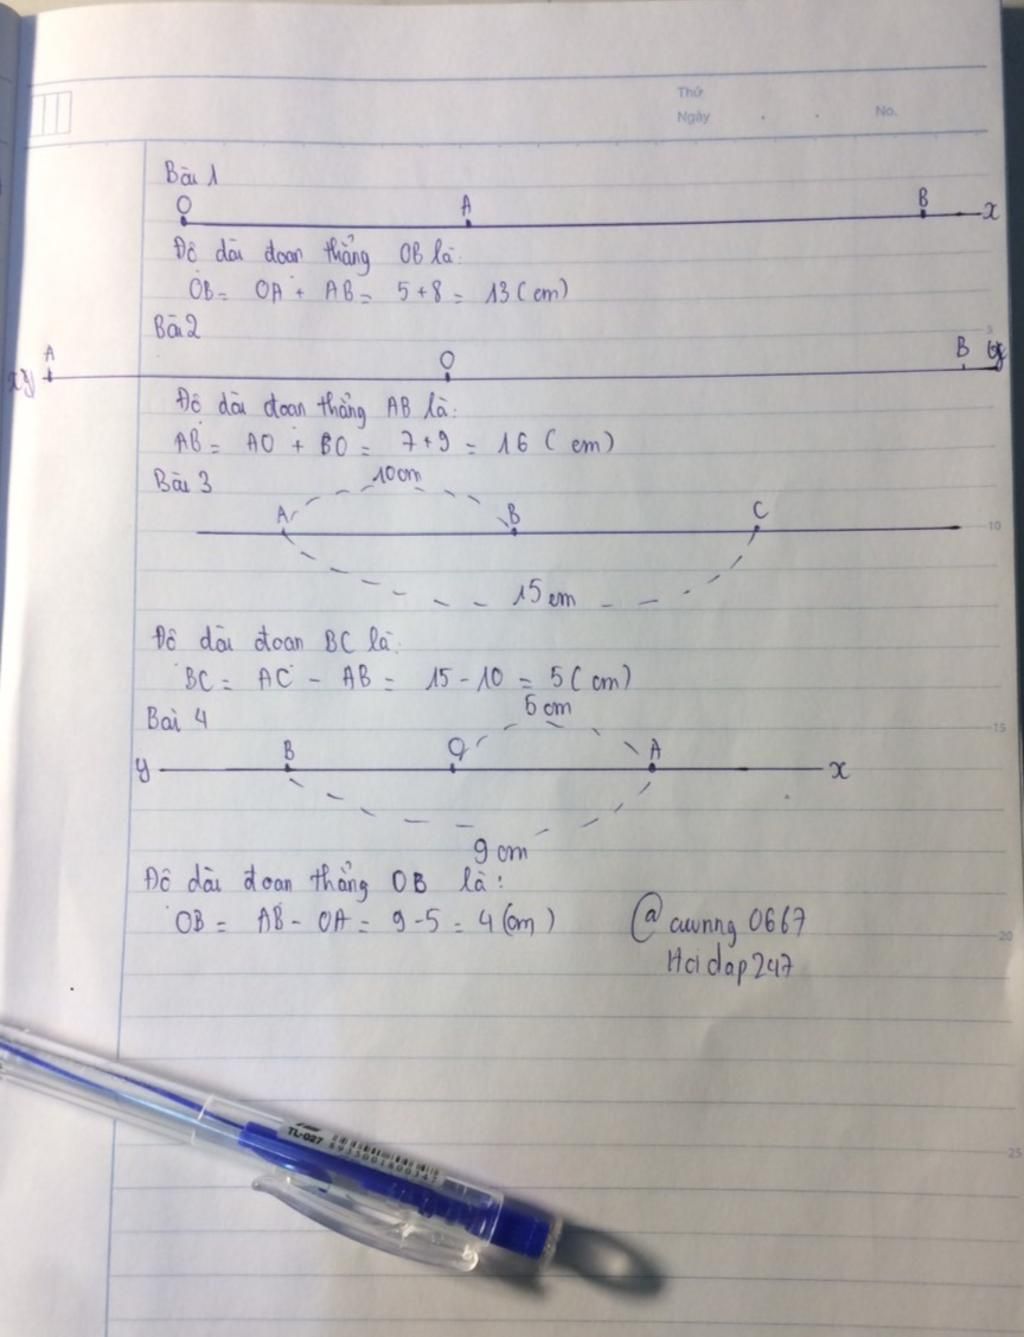 Thứ
Ngày . . No.
Bài 1
O A B x
Độ dài đoạn thẳng OB là:
OB = OA + AB = 5 + 8 = 13 (cm)
Bài 2
5
A O B y
xy
Độ dài đoạn thẳng AB là:
AB = AO + BO = 7 + 9 = 16 ( cm)
Bài 3
10cm
A B C
10
15 cm
Độ dài đoạn BC là:
BC = AC - AB = 15 - 10 = 5 ( cm)
5 cm
Bài 4
15
y B O A x
9 cm
Độ dài đoạn thẳng OB là:
OB = AB - OA = 9 - 5 = 4 (cm)
@ cuwnng 0667
20
Hoidap247
TL-027
8935001800347
25